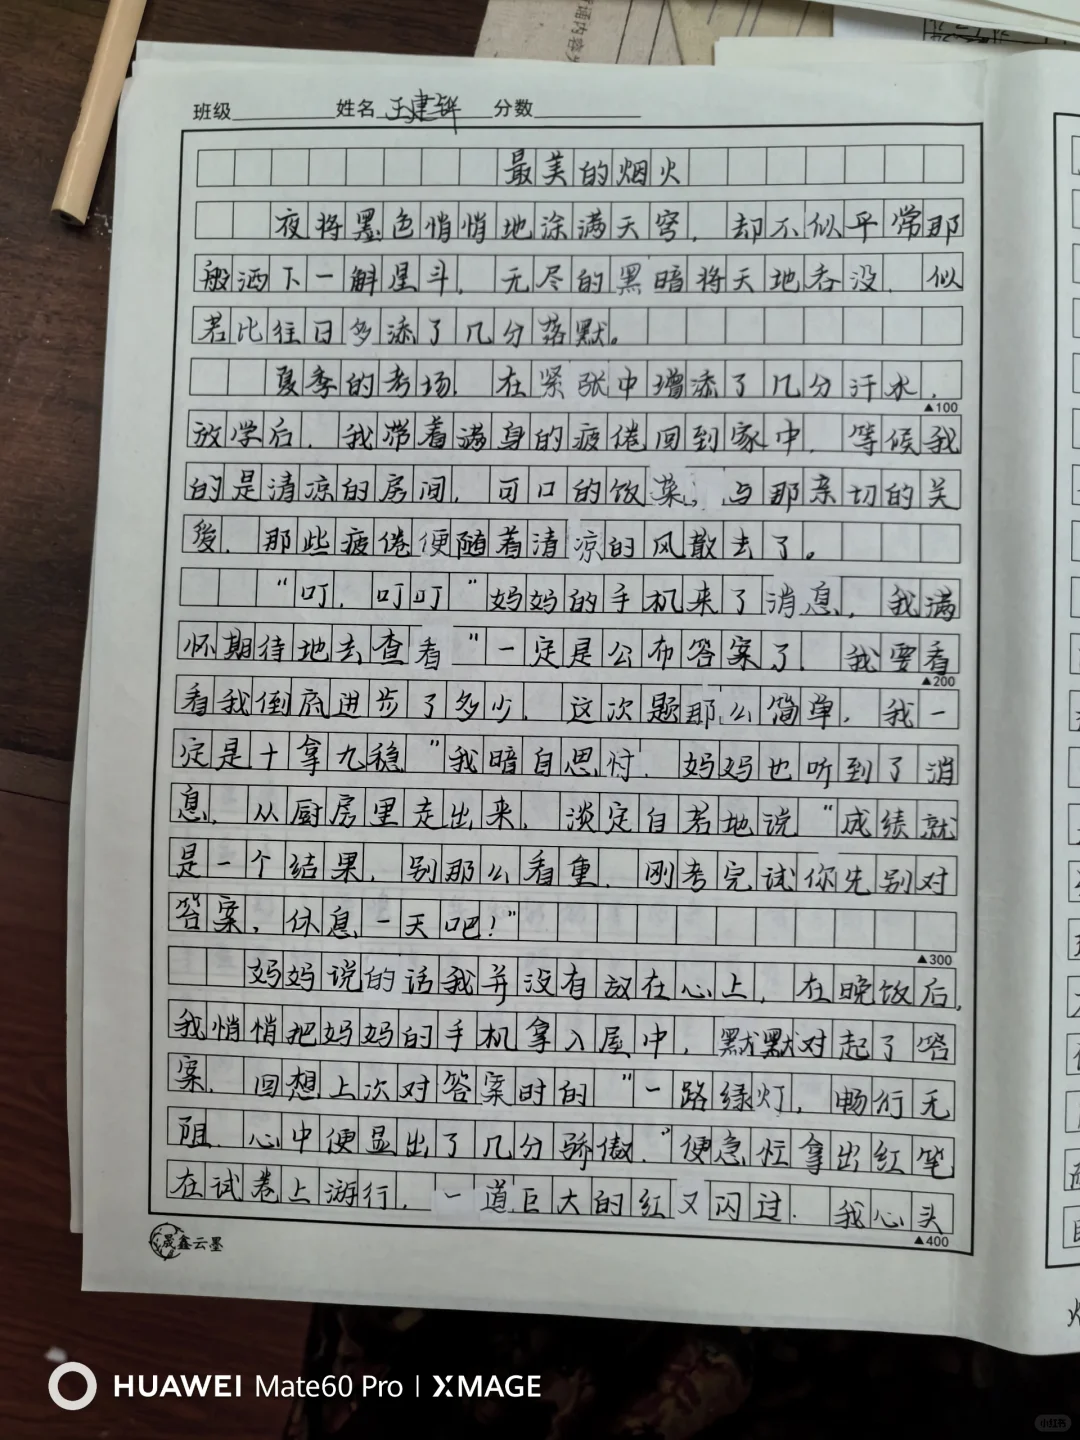 班级 姓名 王建 分数
最美的烟火
夜将墨色悄悄地涂满天穹，却不似平常那
般洒下一斛星斗，无尽的黑暗将天地吞没，似
若比往日多添了几分落默。
夏季的考场，在紧张中增添了几分汗水，
▲100
放学后，我带着满身的疲倦回到家中，等候我
的是清凉的房间，可口的饭菜，与那亲切的关
爱，那些疲倦便随着清凉的风散去了。
“叮，叮叮”妈妈的手机来了消息，我满
怀期待地去查看“一定是公布答案了，我要看
▲200
看我倒底进步了多少，这次题那么简单，我一
定是十拿九稳”我暗自思忖，妈妈也听到了消
息，从厨房里走出来，淡定自若地说“成绩就
是一个结果，别那么看重，刚考完试你先别对
答案，休息一天吧！”
▲300
妈妈说的话我并没有放在心上，在晚饭后，
我悄悄把妈妈的手机拿入屋中，默默对起了答
案，回想上次对答案时的“一路绿灯，畅行无
阻，心中便显出了几分骄傲，”便急忙拿出红笔
在试卷上游行，一道巨大的红叉闪过，我心头
▲400
晟鑫云墨
HUAWEI Mate60 Pro | XMAGE
小红书